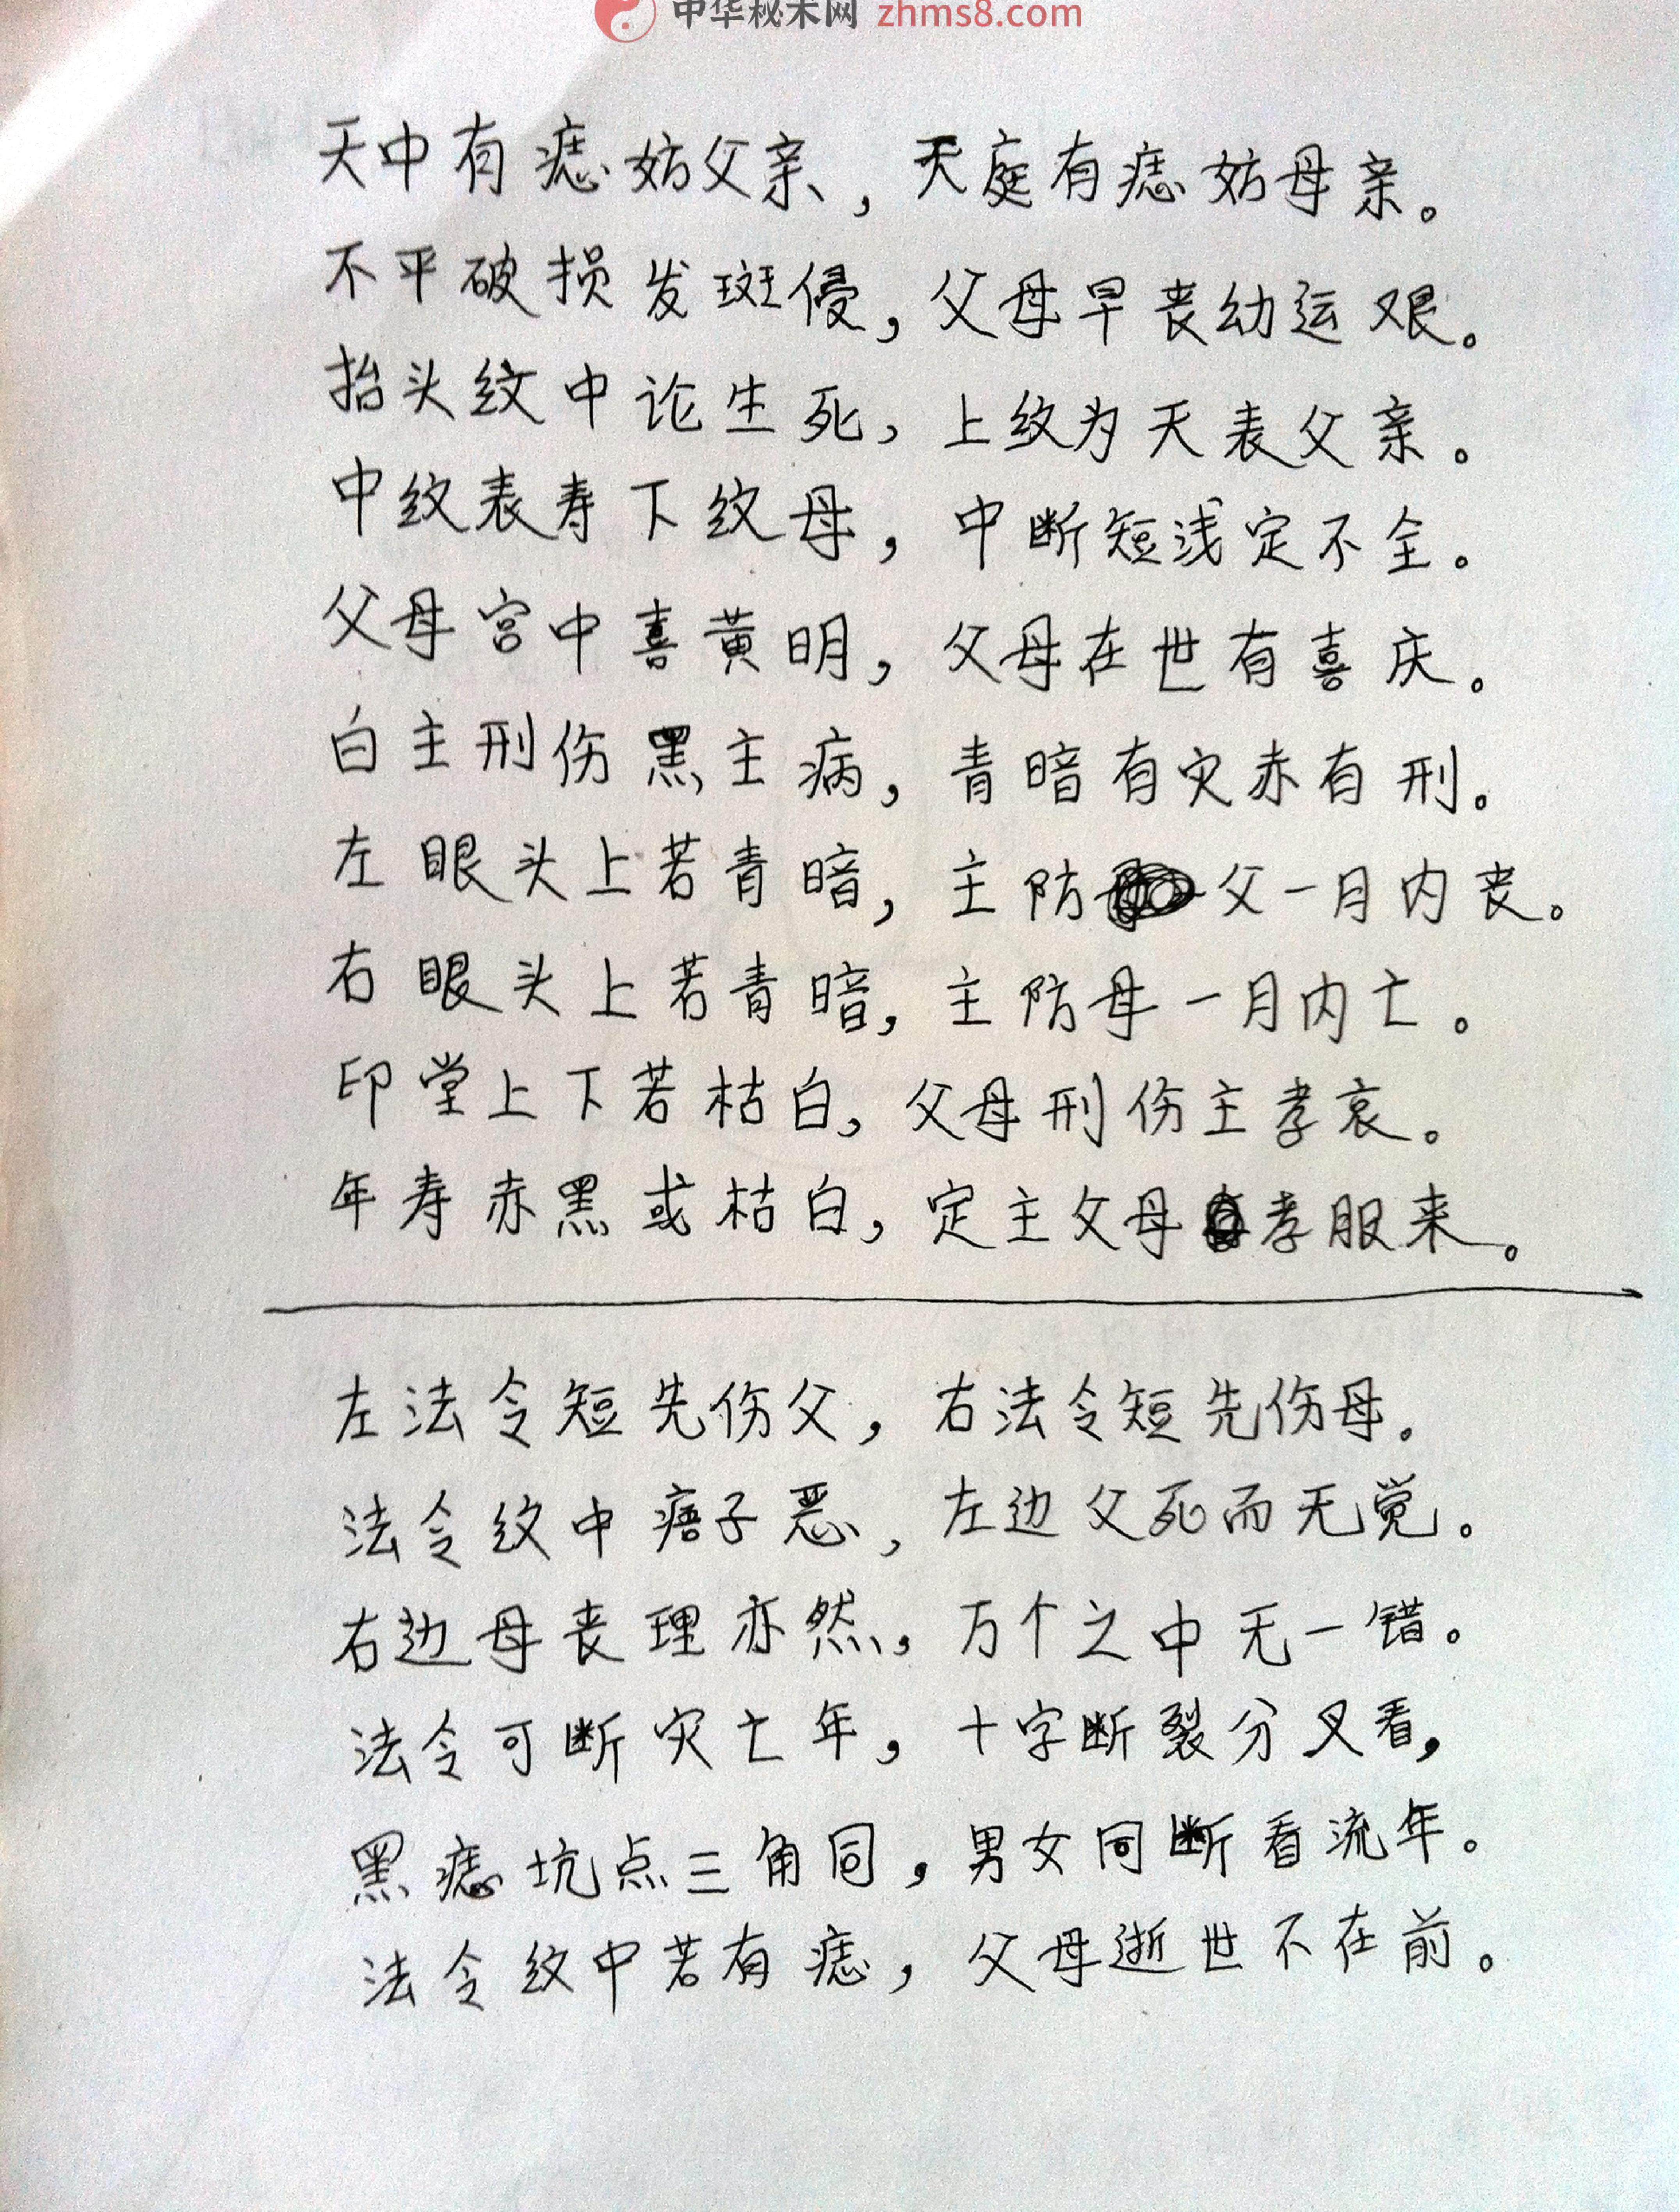 中华秘术网 zhms8.com
天中有痣妨父亲，天庭有痣妨母亲。
不平破损发斑侵，父母早丧幼运艰。
抬头纹中论生死，上纹为天表父亲。
中纹表寿下纹母，中断短浅定不全。
父母宫中喜黄明，父母在世有喜庆。
白主刑伤黑主病，青暗有灾赤有刑。
左眼头上若青暗，主防父一月内丧。
右眼头上若青暗，主防母一月内亡。
印堂上下若枯白，父母刑伤主孝哀。
年寿赤黑或枯白，定主父母孝服来。
左法令短先伤父，右法令短先伤母。
法令纹中痦子恶，左边父死而无觉。
右边母丧理亦然，万个之中无一错。
法令可断灾亡年，十字断裂分叉看，
黑痣坑点三角同，男女同断看流年。
法令纹中若有痣，父母逝世不在前。